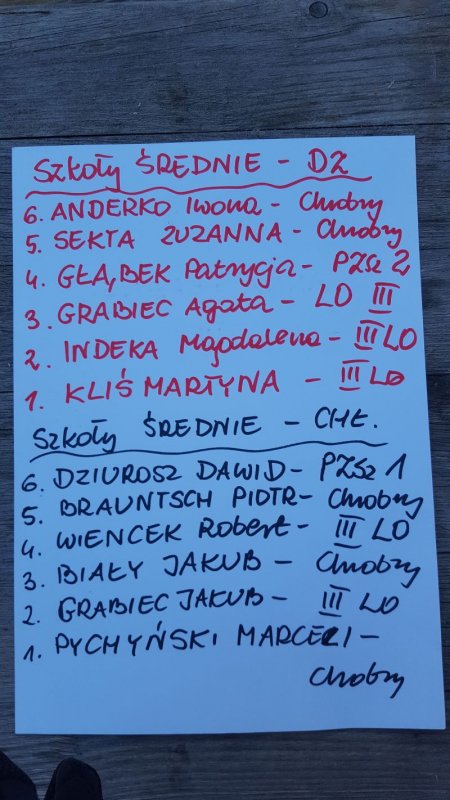 Szkoły ŚREDNIE - DZ
6. ANDERKO Iwona - Chrobry
5. SEKTA ZUZANNA - Chrobry
4. GŁĄBEK Patrycja - PZSz 2
3. GRABIEC Agata - LO III
2. INDEKA Magdalena - III LO
1. KLIŚ MARTYNA - III LO
Szkoły ŚREDNIE - CHŁ.
6. DZIUROSZ DAWID - PZSz 1
5. BRAUNTSCH PIOTR - Chrobry
4. WIENCEK Robert - III LO
3. BIAŁY JAKUB - Chrobry
2. GRABIEC JAKUB - III LO
1. PYCHYŃSKI MARCELI -
Chrobry